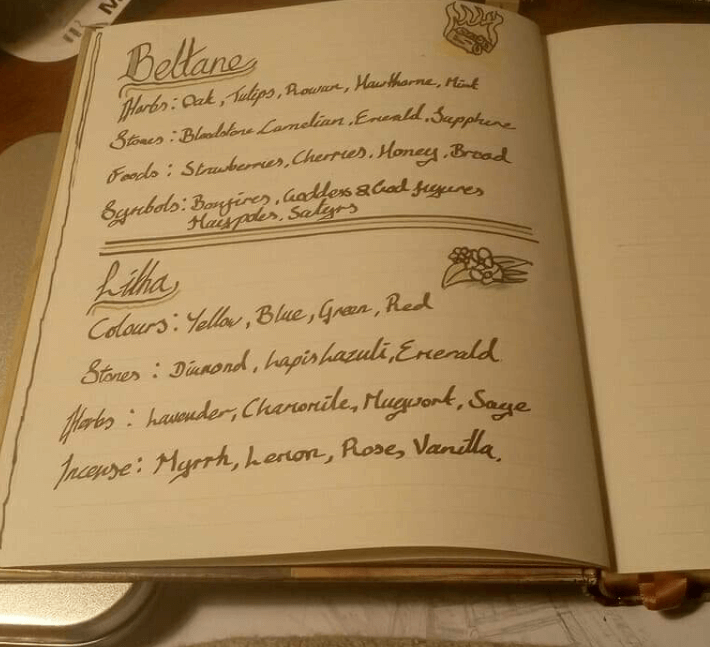 M
Beltane
Herbs: Oak, Tulips, Rowan, Hawthorne, Mint
Stones: Bloodstone Carnelian, Emerald, Sapphire
Foods: Strawberries, Cherries, Honey, Bread
Symbols: Bonfires, Goddess & God figures
Maypoles, Satyrs
Litha
Colours: Yellow, Blue, Green, Red
Stones: Diamond, Lapis Lazuli, Emerald
Herbs: Lavender, Chamomile, Mugwort, Sage
Incense: Myrrh, Lemon, Rose, Vanilla.